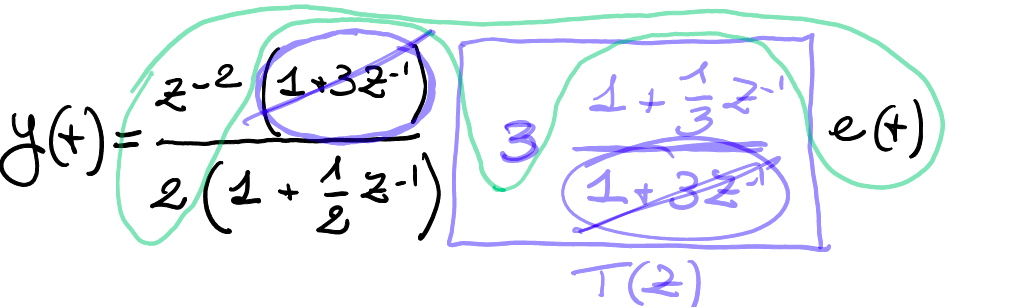 y(t) = \frac{z^{-2} (1+3z^{-1})}{2 (1 + \frac{1}{2} z^{-1})} 3 \frac{1 + \frac{1}{3} z^{-1}}{1+3z^{-1}} e(t)
T(z)